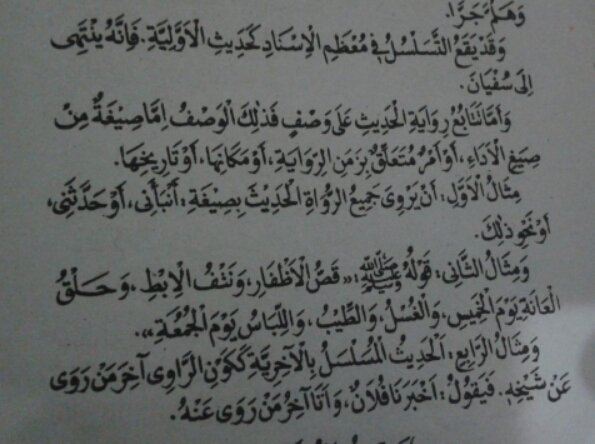 وَهَلُمَّ جَرًّا.
وَقَدْ يَقَعُ التَّسَلْسُلُ فِى مُعْظَمِ الْاِسْنَادِ كَحَدِيْثِ الْاَوَّلِيَّةِ. فَاِنَّهُ يَنْتَهِى
اِلَى سُفْيَانَ.
وَاَمَّا تَتَابُعُ رِوَايَةِ الْحَدِيْثِ عَلَى وَصْفٍ فَذٰلِكَ الْوَصْفُ اِمَّا صِيْغَةٌ مِنْ
صِيَغِ الْاَدَاءِ، اَوْ اَمْرٌ مُتَعَلِّقٌ بِزَمَنِ الرِّوَايَةِ، اَوْ مَكَانِهَا، اَوْ تَارِيْخِهَا.
مِثَالُ الْاَوَّلِ: اَنْ يَرْوِىَ جَمِيْعُ الرُّوَاةِ الْحَدِيْثَ بِصِيْغَةِ: اَنْبَأَنِى، اَوْ حَدَّثَنِى،
اَوْ نَحْوِ ذٰلِكَ.
وَمِثَالُ الثَّانِى: قَوْلُهُ ﷺ: «قَصُّ الْاَظْفَارِ، وَنَتْفُ الْاِبْطِ، وَحَلْقُ
الْعَانَةِ يَوْمَ الْخَمِيْسِ، وَالْغُسْلُ، وَالطِّيْبُ، وَاللِّبَاسُ يَوْمَ الْجُمُعَةِ».
وَمِثَالُ الرَّابِعِ: اَلْحَدِيْثُ الْمُسَلْسَلُ بِالْآخِرِيَّةِ كَكَوْنِ الرَّاوِى آخِرَ مَنْ رَوَى
عَنْ شَيْخِهِ. فَيَقُوْلُ: اَخْبَرَنَا فُلَانٌ، وَاَنَا آخِرُ مَنْ رَوَى عَنْهُ.